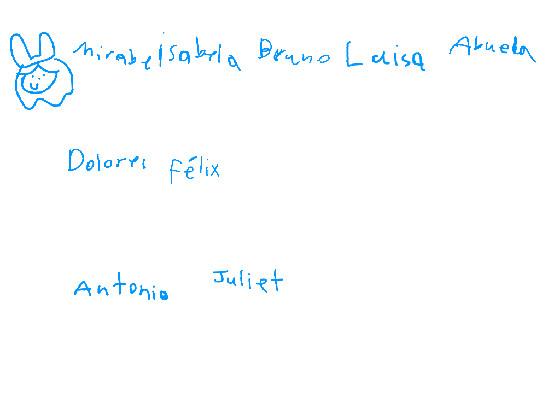 Mirabel Isabela Bruno Luisa Abuela
Dolores Félix
Antonio Juliet